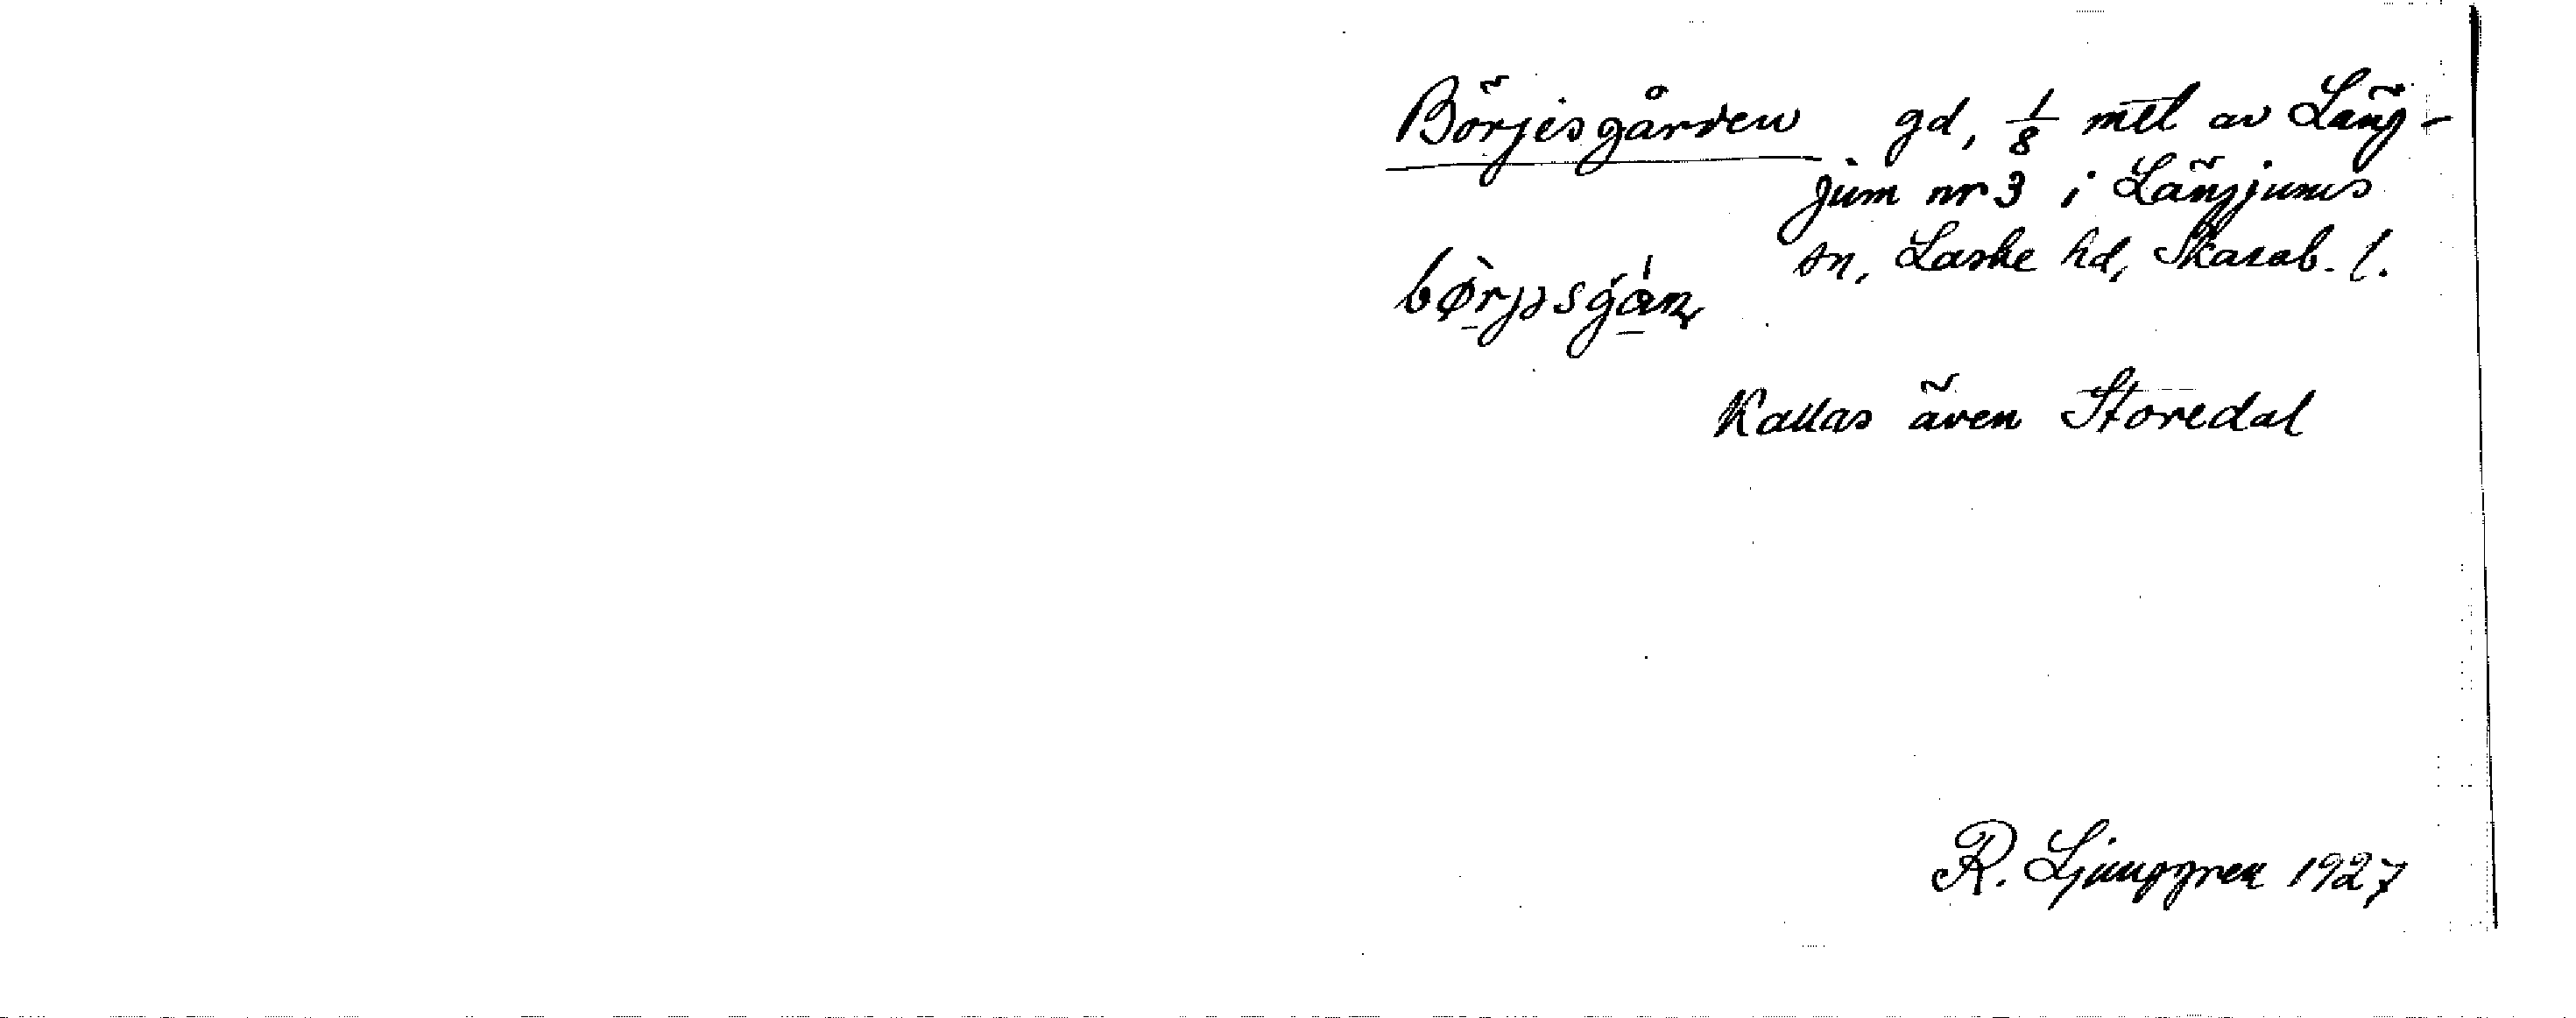 Börjesgården gd, 1/8 mtl av Läng-
jum nr 3 i Längjums
sn, Laske hd, Skarab. l.
bør̀jəsgán
Kallas även Storedal
R. Ljunggren 1927